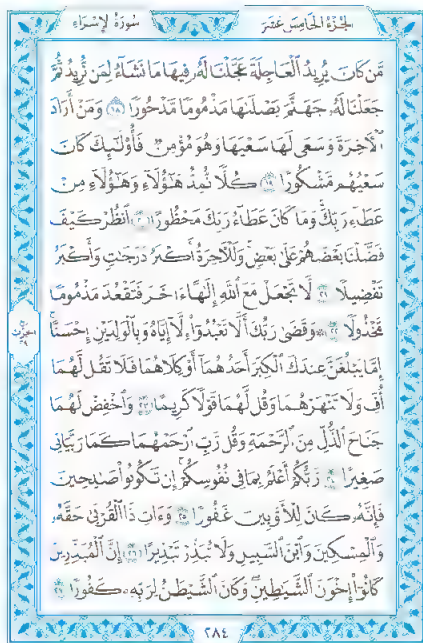 الجزء الخامس عشر
سورة الإسراء
مَّن كَانَ يُرِيدُ ٱلْعَاجِلَةَ عَجَّلْنَا لَهُۥ فِيهَا مَا نَشَآءُ لِمَن نُّرِيدُ ثُمَّ
جَعَلْنَا لَهُۥ جَهَنَّمَ يَصْلَىٰهَا مَذْمُومًا مَّدْحُورًا ١٨ وَمَنْ أَرَادَ
ٱلْءَاخِرَةَ وَسَعَىٰ لَهَا سَعْيَهَا وَهُوَ مُؤْمِنٌ فَأُو۟لَٰٓئِكَ كَانَ
سَعْيُهُم مَّشْكُورًا ١٩ كُلًّا نُّمِدُّ هَٰٓؤُلَآءِ وَهَٰٓؤُلَآءِ مِنْ
عَطَآءِ رَبِّكَ وَمَا كَانَ عَطَآءُ رَبِّكَ مَحْظُورًا ٢٠ ٱنظُرْ كَيْفَ
فَضَّلْنَا بَعْضَهُمْ عَلَىٰ بَعْضٍ وَلَلْءَاخِرَةُ أَكْبَرُ دَرَجَٰتٍ وَأَكْبَرُ
تَفْضِيلًا ٢١ لَّا تَجْعَلْ مَعَ ٱللَّهِ إِلَٰهًا ءَاخَرَ فَتَقْعُدَ مَذْمُومًا
مَّخْذُولًا ٢٢ ۞ وَقَضَىٰ رَبُّكَ أَلَّا تَعْبُدُوٓا۟ إِلَّآ إِيَّاهُ وَبِٱلْوَٰلِدَيْنِ إِحْسَٰنًا
إِمَّا يَبْلُغَنَّ عِندَكَ ٱلْكِبَرَ أَحَدُهُمَآ أَوْ كِلَاهُمَا فَلَا تَقُل لَّهُمَآ
أُفٍّ وَلَا تَنْهَرْهُمَا وَقُل لَّهُمَا قَوْلًا كَرِيمًا ٢٣ وَٱخْفِضْ لَهُمَا
جَنَاحَ ٱلذُّلِّ مِنَ ٱلرَّحْمَةِ وَقُل رَّبِّ ٱرْحَمْهُمَا كَمَا رَبَّيَانِى
صَغِيرًا ٢٤ رَّبُّكُمْ أَعْلَمُ بِمَا فِى نُفُوسِكُمْ إِن تَكُونُوا۟ صَٰلِحِينَ
فَإِنَّهُۥ كَانَ لِلْأَوَّٰبِينَ غَفُورًا ٢٥ وَءَاتِ ذَا ٱلْقُرْبَىٰ حَقَّهُۥ
وَٱلْمِسْكِينَ وَٱبْنَ ٱلسَّبِيلِ وَلَا تُبَذِّرْ تَبْذِيرًا ٢٦ إِنَّ ٱلْمُبَذِّرِينَ
كَانُوٓا۟ إِخْوَٰنَ ٱلشَّيَٰطِينِ وَكَانَ ٱلشَّيْطَٰنُ لِرَبِّهِۦ كَفُورًا ٢٧
٢٨٤